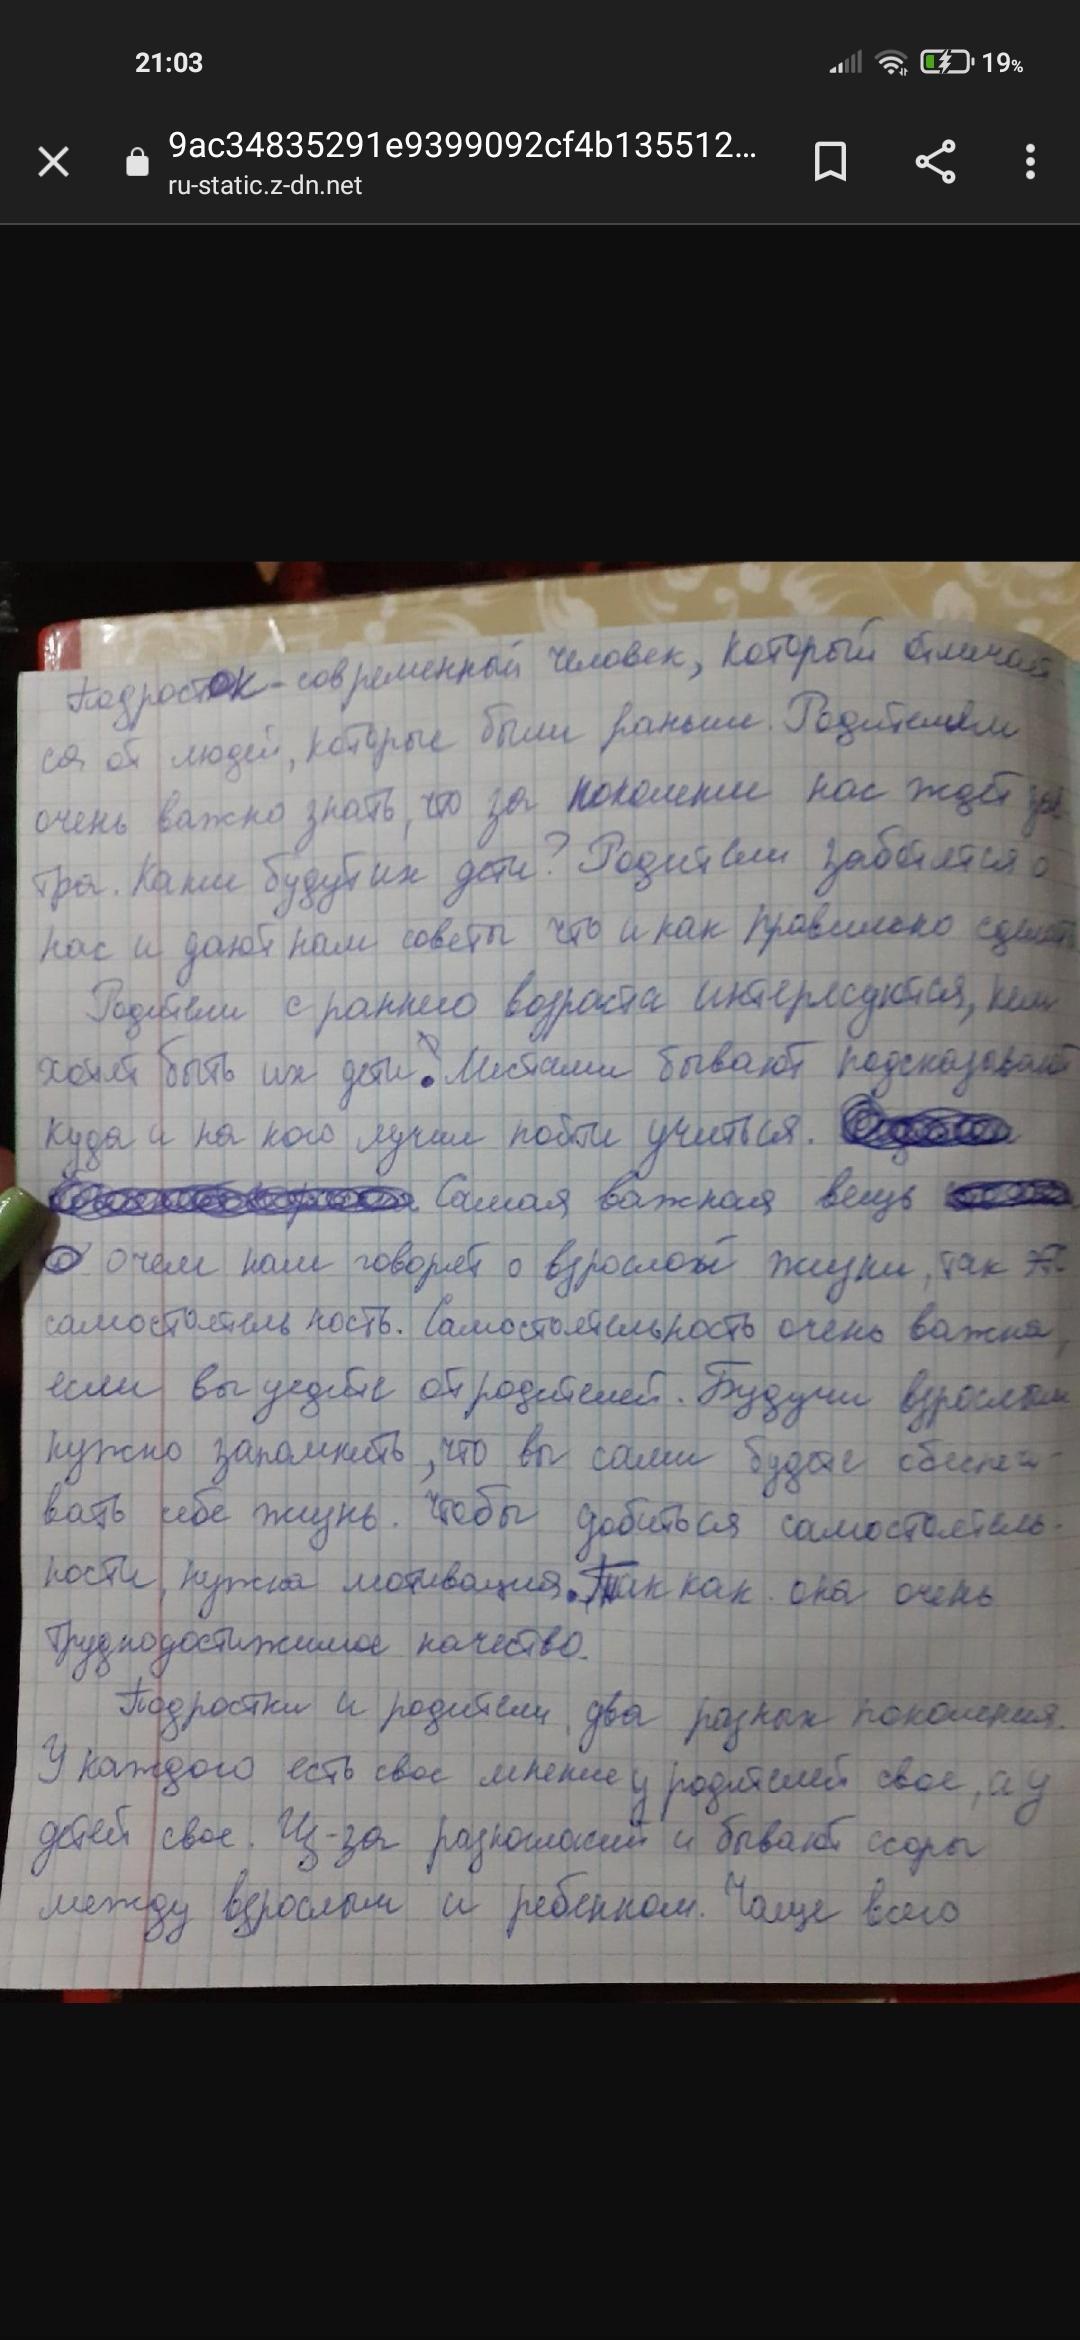 21:03
19%
9ac34835291e9399092cf4b135512...
ru-static.z-dn.net
Подросток - современный человек, который отличает
ся от людей, которые были раньше. Родителям
очень важно знать, что за поколение нас ждет зав
тра. Какие будут их дети? Родители заботятся о
нас и дают нам советы что и как правильно сделать
Родители с раннего возраста интересуются, кем
хотят быть их дети. Местами бывают подсказывают
куда и на кого лучше пойти учиться.
Самая важная вещь
о чем нам говорят о взрослой жизни, так это
самостоятельность. Самостоятельность очень важна,
если вы уедете от родителей. Будучи взрослым
нужно запомнить, что вы сами будете обеспечи-
вать себе жизнь. Чтобы добиться самостоятель-
ности, нужна мотивация. Так как она очень
труднодостижимое качество.
Подростки и родители, два разных поколения.
У каждого есть свое мнение у родителей свое, а у
детей свое. Из-за разногласий и бывают ссоры
между взрослым и ребенком. Чаще всего